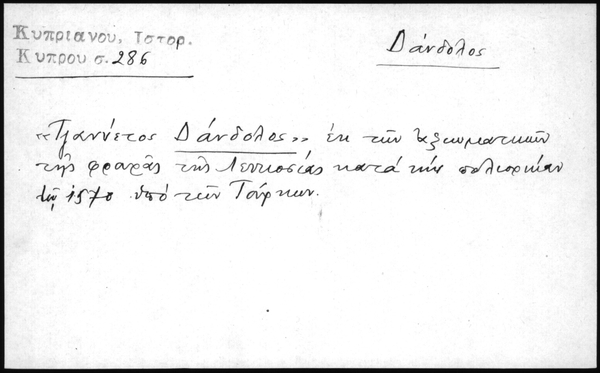 Κυπριανου, Ιστορ.
Κυπρου σ. 286
Δάνδολος
«Τζαννέτος Δάνδολος» ἐκ τῶν ἀξιωματικῶν
τῆς φραρᾶς τῆς Λευκωσίας κατά τήν πολιορκίαν
τῷ 1570 ὑπό τῶν Τούρκων.